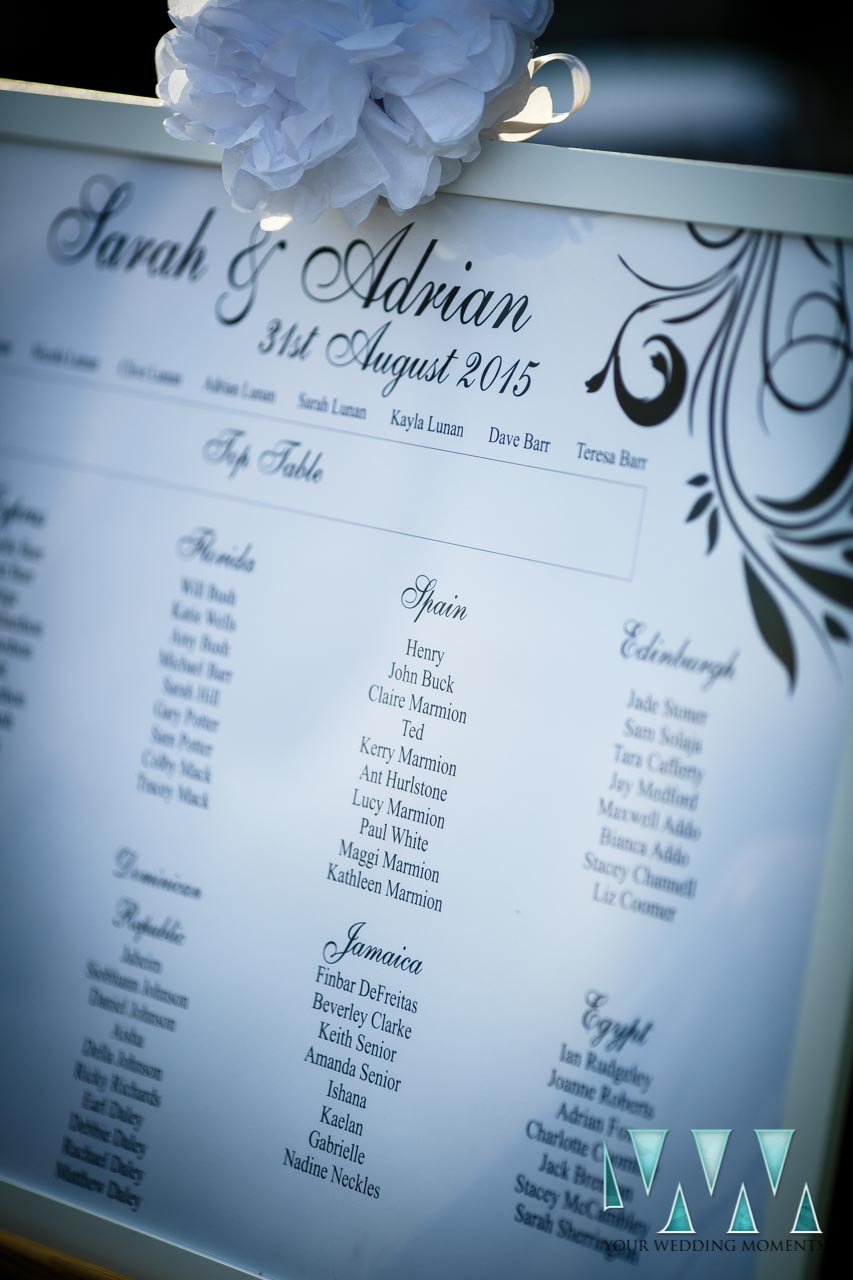 Sarah & Adrian
31st August 2015
Clive Lunan Adrian Lunan Sarah Lunan Kayla Lunan Dave Barr Teresa Barr
Top Table
Florida
Will Bush
Katie Wells
Amy Bush
Michael Barr
Sarah Hill
Gary Potter
Sam Potter
Colby Mack
Tracey Mack
Spain
Henry
John Buck
Claire Marmion
Ted
Kerry Marmion
Ant Hurlstone
Lucy Marmion
Paul White
Maggi Marmion
Kathleen Marmion
Edinburgh
Jade Stoner
Sam Solaja
Tara Cafferty
Jay Medford
Maxwell Addo
Bianca Addo
Stacey Channell
Liz Coomer
Dominican
Republic
Johnson
Daniel Johnson
Aisha
Della Johnson
Ricky Richards
Earl Daley
Debbie Daley
Rachael Daley
Matthew Daley
Jamaica
Finbar DeFreitas
Beverley Clarke
Keith Senior
Amanda Senior
Ishana
Kaelan
Gabrielle
Nadine Neckles
Egypt
Ian Rudgeley
Joanne Roberts
Adrian
Charlotte
Jack
Stacey
Sarah
YOUR WEDDING MOMENTS